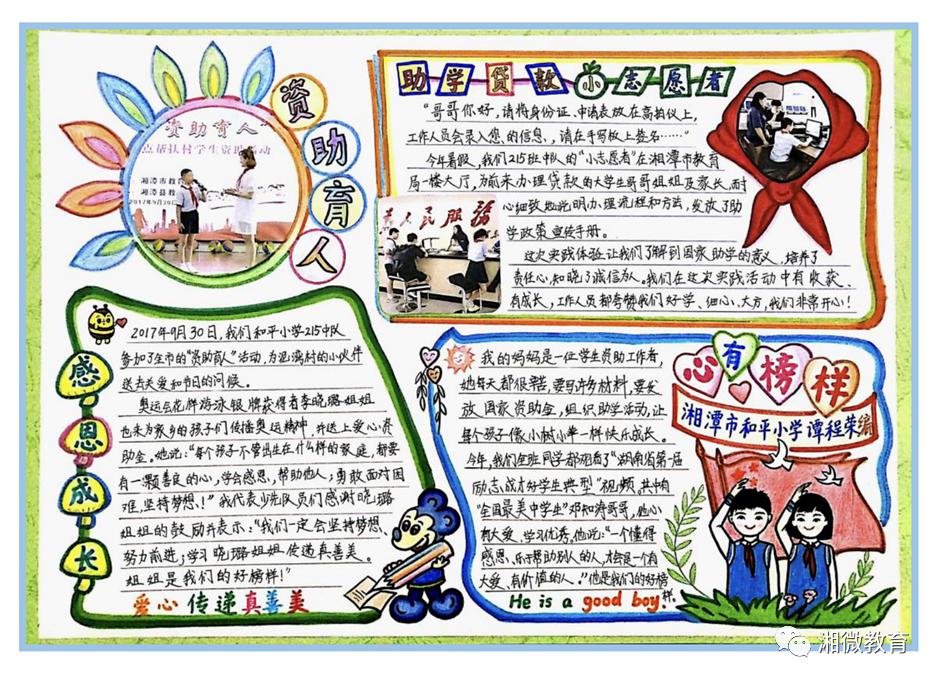 资助育人
"资助育人"
点帮扶村学生资助活动
湘潭市教育
湘潭县教
2017年9月30日
助学贷款小志愿者
"哥哥你好,请将身份证、申请表放在高拍仪上,
工作人员会录入您的信息,请在手写板上签名……"
今年暑假,我们215班中队的"小志愿者"在湘潭市教育
局一楼大厅,为前来办理贷款的大学生哥哥姐姐及家长,耐
心细致地说明办理流程和方法,发放了助
学政策宣传手册。
这次实践体验让我们了解到国家助学的意义,培养了
责任心,知晓了诚信为人。我们在这次实践活动中有收获、
有成长,工作人员都夸赞我们好学、细心、大方,我们非常开心!
人民服务
感恩成长
2017年9月30日,我们和平小学215中队
参加了全市的"资助育人"活动,为泥湾村的小伙伴
送去关爱和节日的问候。
奥运会花样游泳银牌获得者李晓璐姐姐
也来为家乡的孩子们传播奥运精神,并送上爱心资
助金。她说:"每个孩子不管出生在什么样的家庭,都要
有一颗善良的心,学会感恩,帮助他人;勇敢面对困
难,坚持梦想!"我代表少先队员们感谢晓璐
姐姐的鼓励并表示:"我们一定会坚持梦想、
努力前进;学习晓璐姐姐传递真善美。
姐姐是我们的好榜样!"
爱心传递真善美
心有榜样
湘潭市和平小学 谭程荣编
我的妈妈是一位学生资助工作者,
她每天都很辛苦,要写许多材料,要发
放国家资助金,组织助学活动,让
每个孩子像小树小草一样快乐成长。
今年,我们全班同学都观看了"湖南省第一届
励志成才好学生典型"视频,其中有
"全国最美中学生"邓知滂哥哥,他心
有大爱、学习优秀,他说:"一个懂得
感恩、乐于帮助别人的人,才会是一个有
大爱、有价值的人。"他是我们的好榜
样。
He is a good boy.
湘微教育